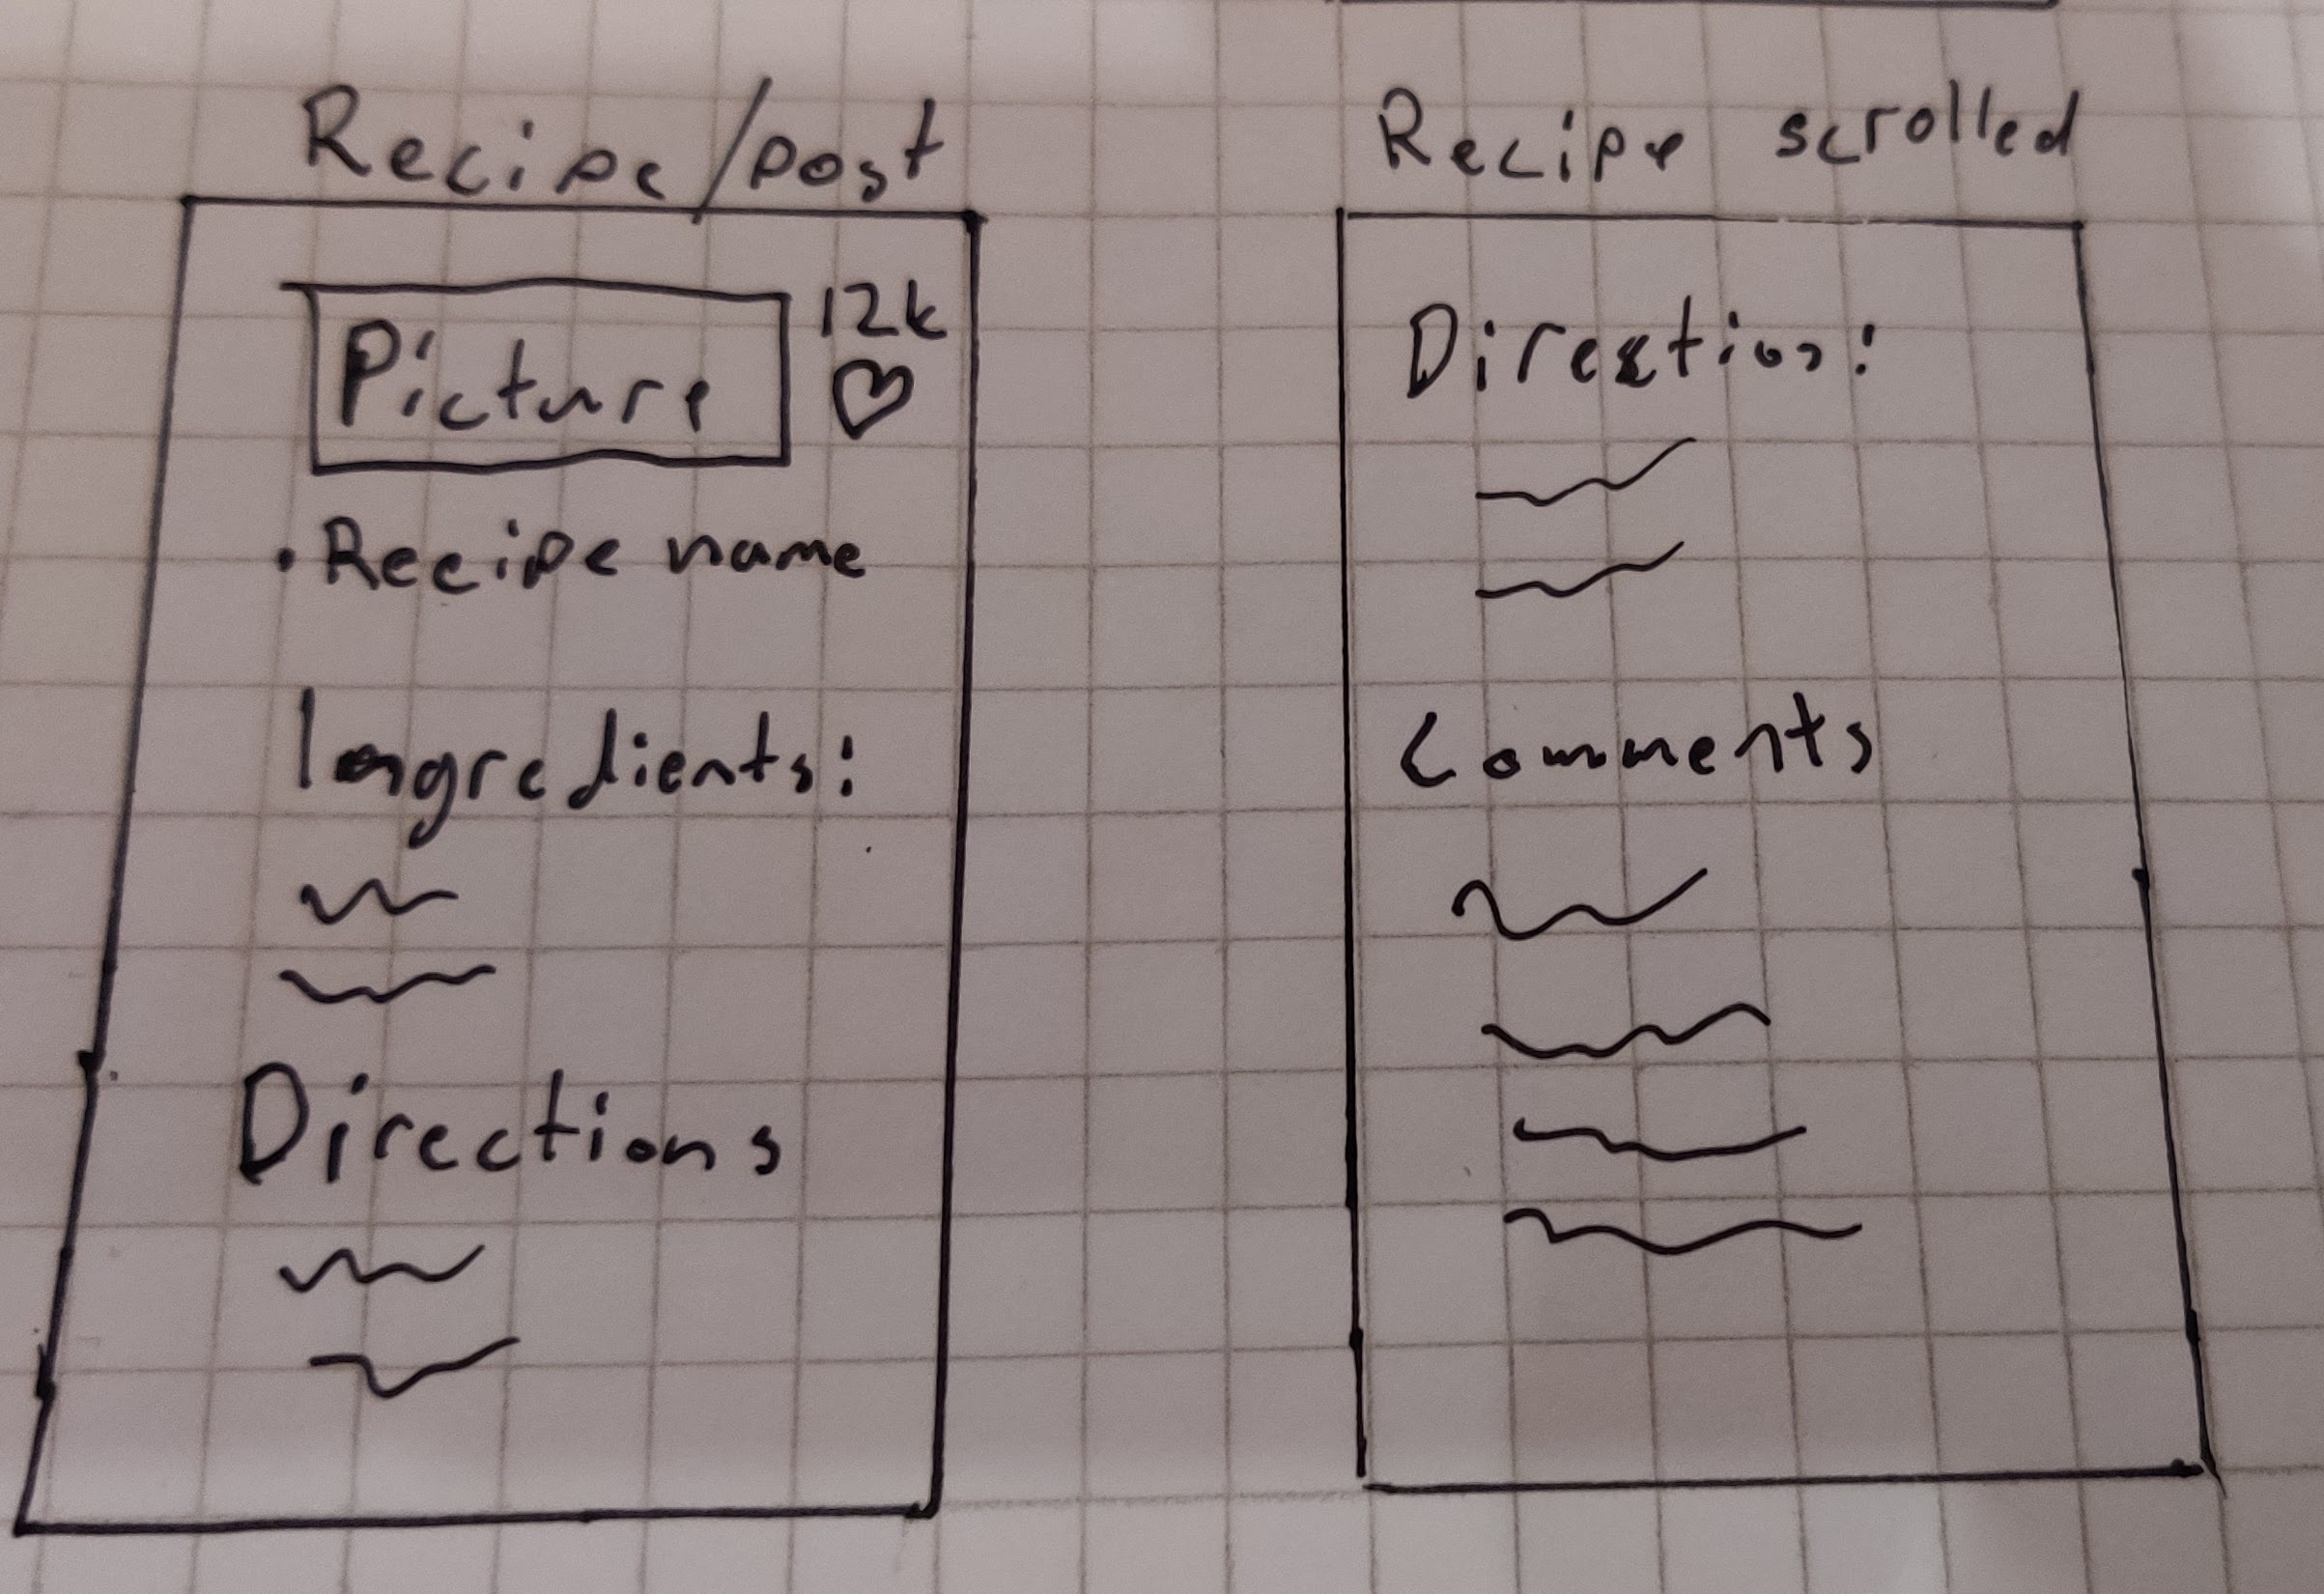 Recipe/post
Picture
12k
• Recipe name
Ingredients:
Directions
Recipe scrolled
Directios:
Comments